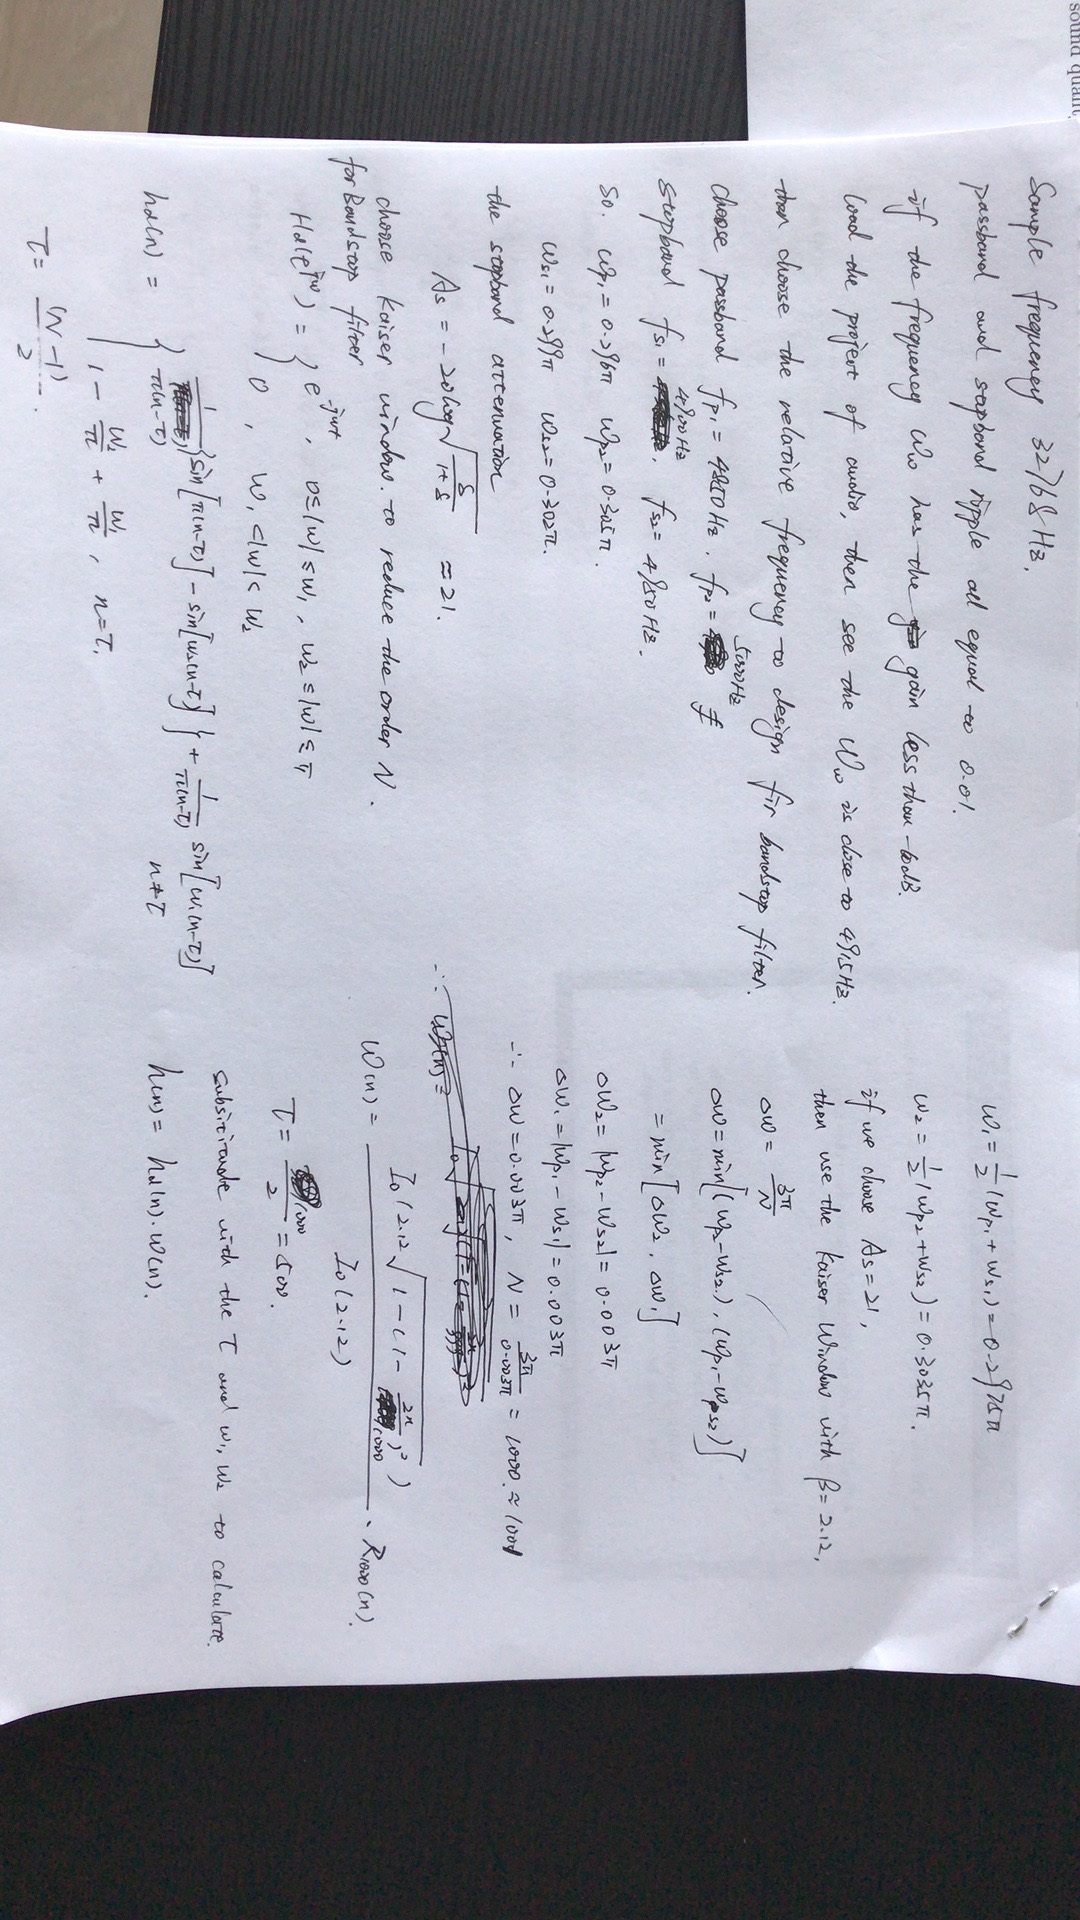 sound quality
Sample frequency 32768Hz.
passband and stopband ripple all equal to 0.01.
if the frequency Ww has the gain less than -60dB.
load the project of audio, then see the Ww is close to 4915Hz.
then choose the relative frequency to design fir bandstop filter.
5000Hz
choose passband fp1 = 4850Hz. fp2 =
4900Hz
stopband fs1 = . fs2 = 4950Hz.
So. wp1 = 0.296π wp2 = 0.305π.
ws1 = 0.299π ws2 = 0.302π.
the stopband attenuation
As = -20log√(δ/(1+δ)) ≈ 21.
choose Kaiser window. to reduce the order N.
for Bandstop filter
Hd(e^jw) = { e^-jwτ, 0≤|w|≤w1, w2≤|w|≤π
0, w1<|w|<w2
hd(n) = { 1/π(n-τ) {sin[π(n-τ)] - sin[w2(n-τ)]} + 1/π(n-τ) sin[w1(n-τ)]
n≠τ
1 - w2/π + w1/π, n=τ.
τ = (N-1)/2.
w1 = 1/2 (wp1+ws1) = 0.2975π
w2 = 1/2 (wp2+ws2) = 0.3035π.
if we choose As=21,
then use the Kaiser Window with β=2.12,
△w = 3π/N
△w = min[(wp2-ws2), (wp1-ws2)]
= min[△w2, △w1]
△w2 = |wp2-ws2| = 0.003π
△w1 = |wp1-ws1| = 0.003π
∴ △w = 0.003π, N = 3π/0.003π = 1000. ≈ 1001
w(n) = I0(2.12√(1-(1-2n/1000)²)) / I0(2.12) · R1000(n).
τ = 1000/2 = 500.
subsititude with the τ and w1, w2 to calculate.
h(n) = hd(n)·w(n).